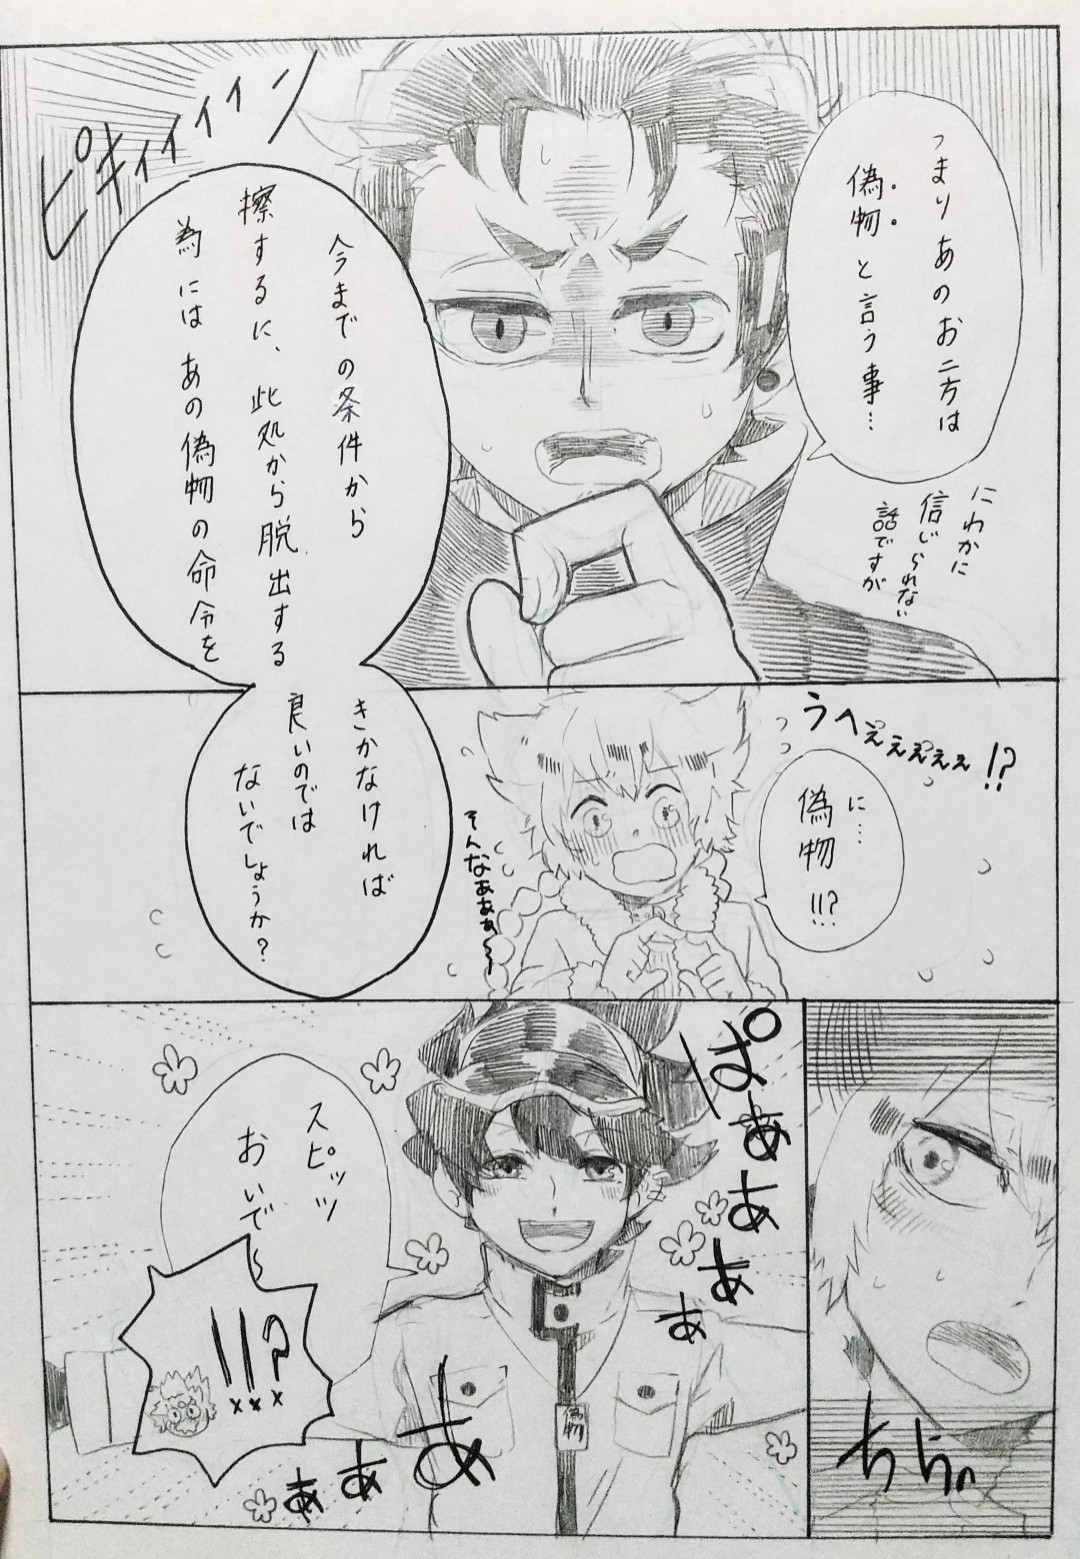 つまりあのお二方は
偽物と言う事…
にわかに
信じられない
話ですが
ピキィィィィン
今までの条件から
擦するに、此処から脱出する
為にはあの偽物の命令を
きかなければ
良いのでは
ないでしょうか?
うへぇぇぇぇぇ!?
に…
偽物!!?
そんなぁぁぁぁ〜
ちらっ
ぱぁああああ
スピッツ
おいで〜
!!?
偽物
あああ